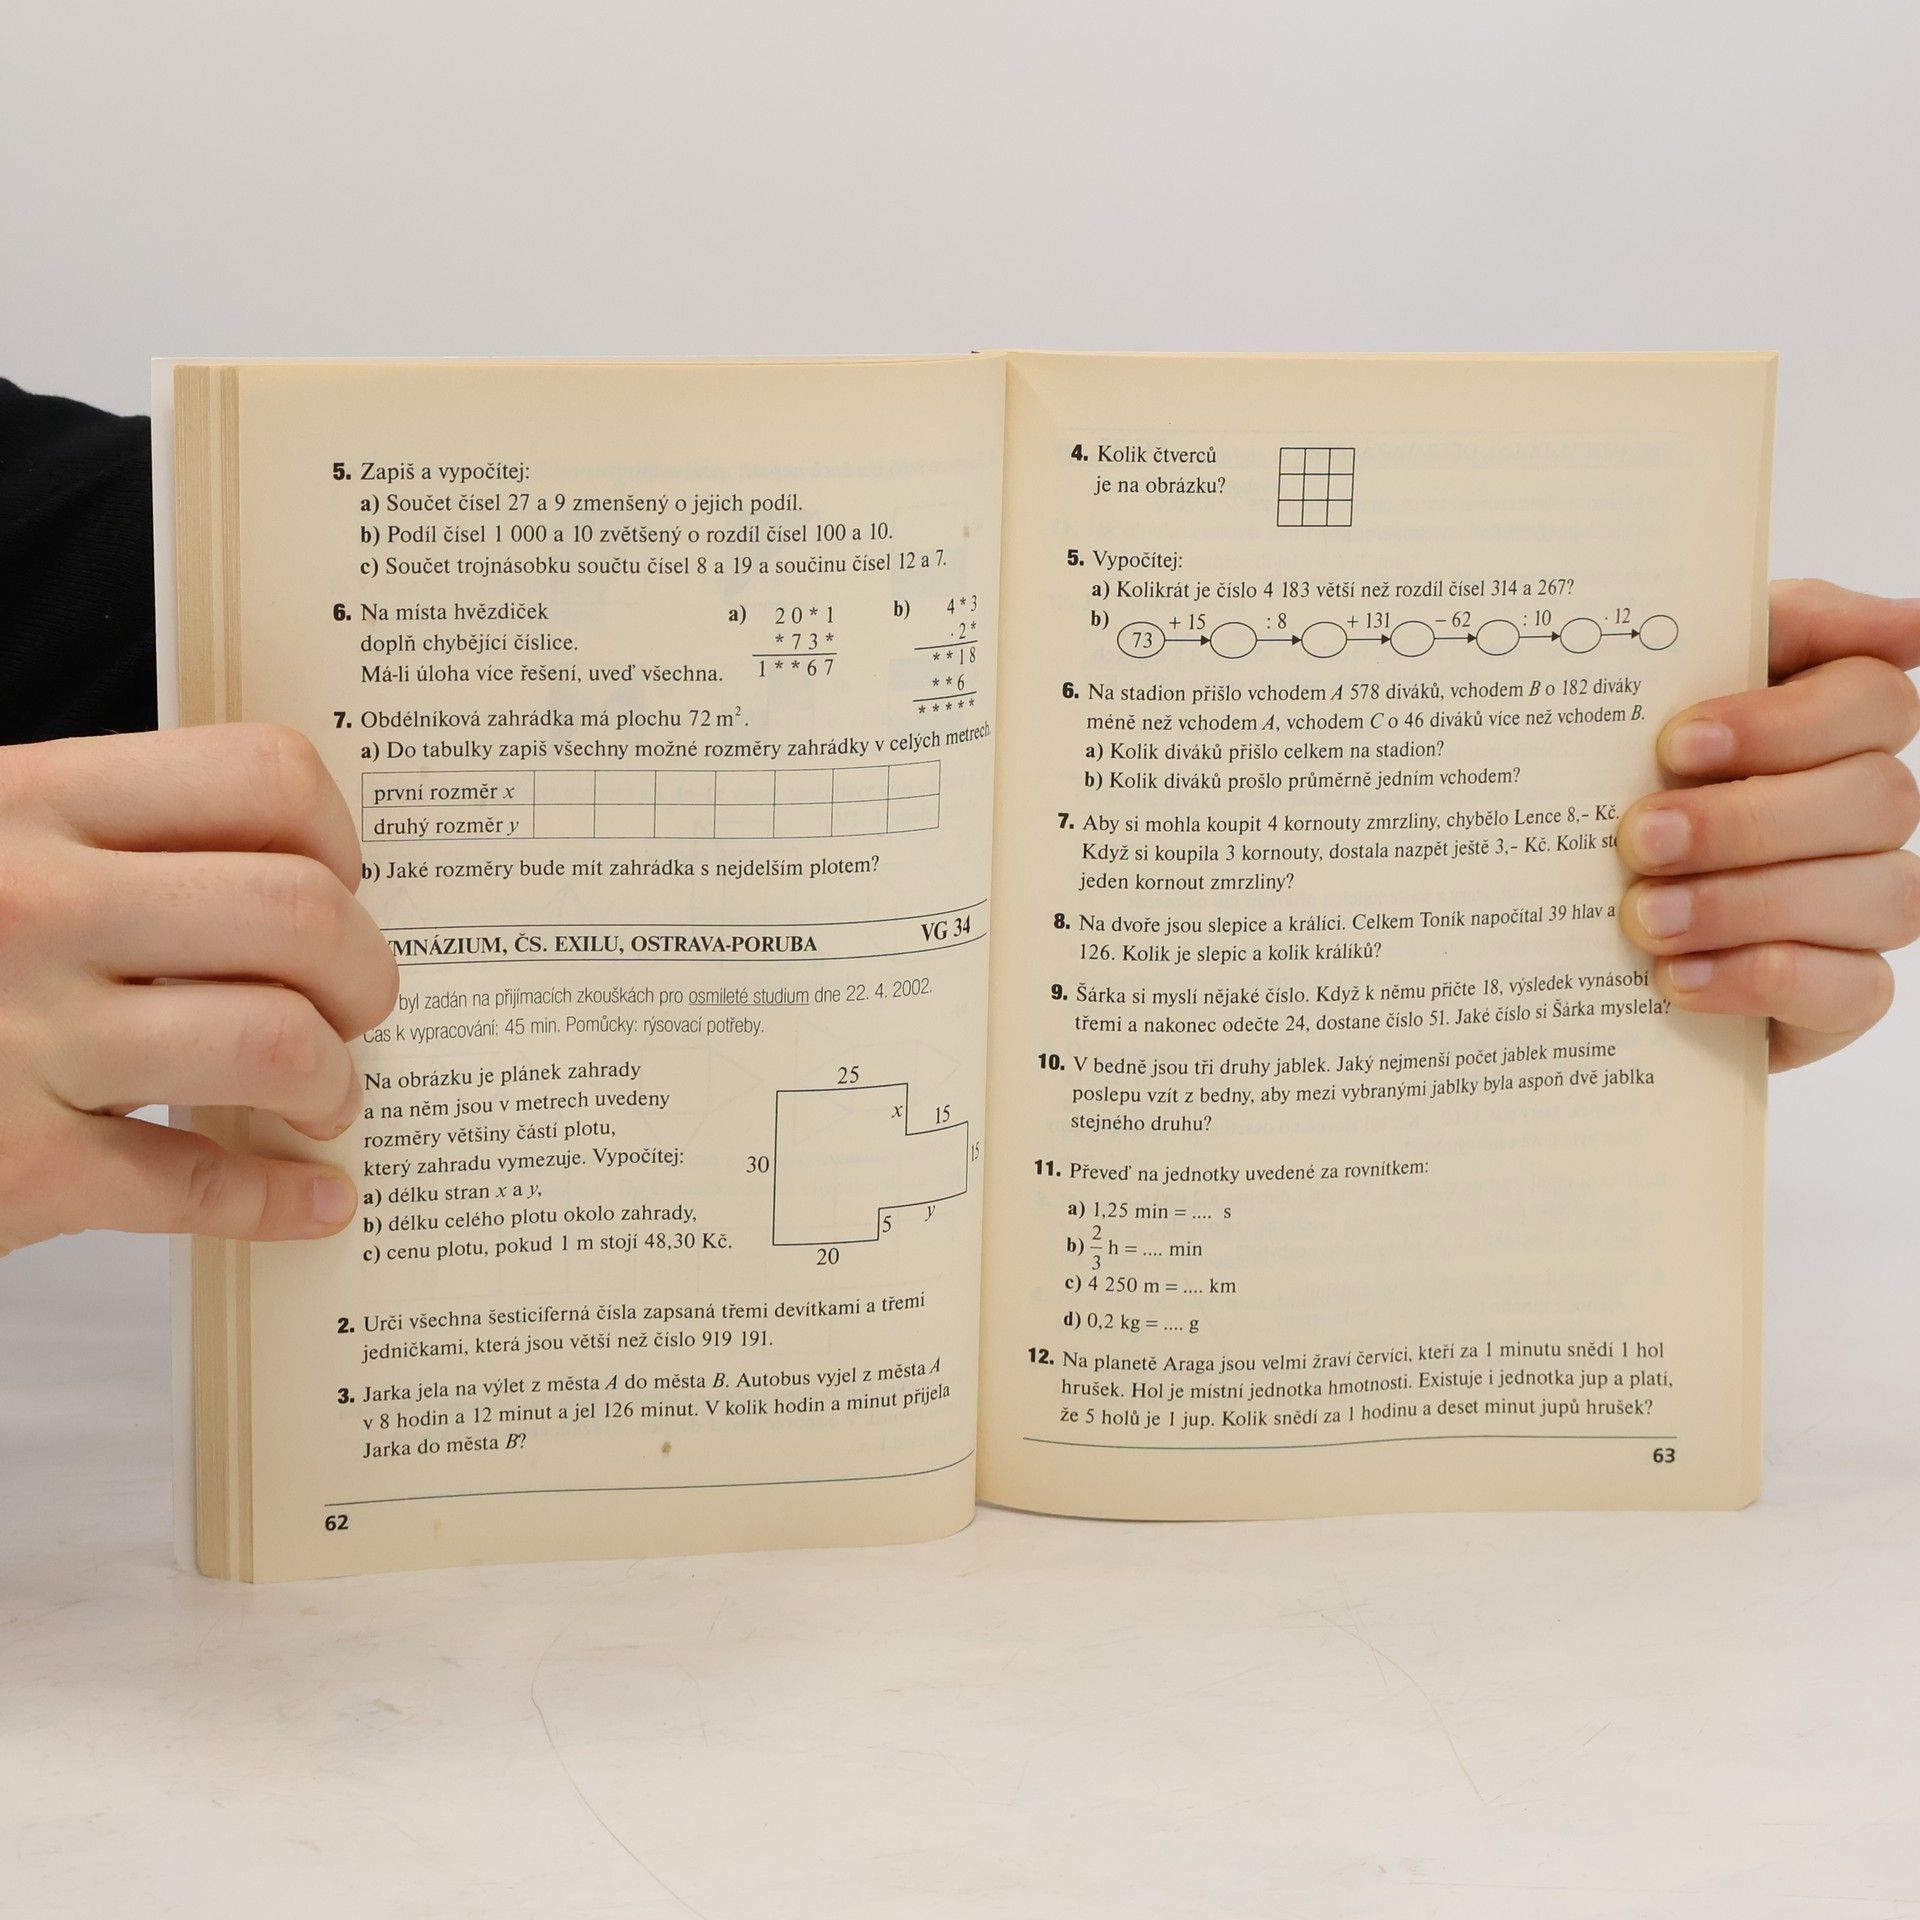 5. Zapiš a vypočítej:
a) Součet čísel 27 a 9 zmenšený o jejich podíl.
b) Podíl čísel 1 000 a 10 zvětšený o rozdíl čísel 100 a 10.
c) Součet trojnásobku součtu čísel 8 a 19 a součinu čísel 12 a 7.
6. Na místa hvězdiček
doplň chybějící číslice.
Má-li úloha více řešení, uveď všechna.
a) 2 0 * 1
* 7 3 *
1 * * 6 7
b) 4 * 3
. 2 *
* * 1 8
* * 6
* * * * *
7. Obdélníková zahrádka má plochu 72 m².
a) Do tabulky zapiš všechny možné rozměry zahrádky v celých metrech.
první rozměr x
druhý rozměr y
b) Jaké rozměry bude mít zahrádka s nejdelším plotem?
MNÁZIUM, ČS. EXILU, OSTRAVA-PORUBA VG 34
byl zadán na přijímacích zkouškách pro osmileté studium dne 22. 4. 2002.
Čas k vypracování: 45 min. Pomůcky: rýsovací potřeby.
Na obrázku je plánek zahrady
a na něm jsou v metrech uvedeny
rozměry většiny částí plotu,
který zahradu vymezuje. Vypočítej:
a) délku stran x a y,
b) délku celého plotu okolo zahrady,
c) cenu plotu, pokud 1 m stojí 48,30 Kč.
25
x
15
15
30
y
5
20
2. Urči všechna šesticiferná čísla zapsaná třemi devítkami a třemi
jedničkami, která jsou větší než číslo 919 191.
3. Jarka jela na výlet z města A do města B. Autobus vyjel z města A
v 8 hodin a 12 minut a jel 126 minut. V kolik hodin a minut přijela
Jarka do města B?
62
4. Kolik čtverců
je na obrázku?
5. Vypočítej:
a) Kolikrát je číslo 4 183 větší než rozdíl čísel 314 a 267?
b) 73 + 15 : 8 + 131 – 62 : 10 · 12
6. Na stadion přišlo vchodem A 578 diváků, vchodem B o 182 diváky
méně než vchodem A, vchodem C o 46 diváků více než vchodem B.
a) Kolik diváků přišlo celkem na stadion?
b) Kolik diváků prošlo průměrně jedním vchodem?
7. Aby si mohla koupit 4 kornouty zmrzliny, chybělo Lence 8,– Kč.
Když si koupila 3 kornouty, dostala nazpět ještě 3,– Kč. Kolik
jeden kornout zmrzliny?
8. Na dvoře jsou slepice a králíci. Celkem Toník napočítal 39 hlav a
126. Kolik je slepic a kolik králíků?
9. Šárka si myslí nějaké číslo. Když k němu přičte 18, výsledek vynásobí
třemi a nakonec odečte 24, dostane číslo 51. Jaké číslo si Šárka myslela?
10. V bedně jsou tři druhy jablek. Jaký nejmenší počet jablek musíme
poslepu vzít z bedny, aby mezi vybranými jablky byla aspoň dvě jablka
stejného druhu?
11. Převeď na jednotky uvedené za rovnítkem:
a) 1,25 min = .... s
b) 2/3 h = .... min
c) 4 250 m = .... km
d) 0,2 kg = .... g
12. Na planetě Araga jsou velmi žraví červíci, kteří za 1 minutu snědí 1 hol
hrušek. Hol je místní jednotka hmotnosti. Existuje i jednotka jup a platí,
že 5 holů je 1 jup. Kolik snědí za 1 hodinu a deset minut jupů hrušek?
63